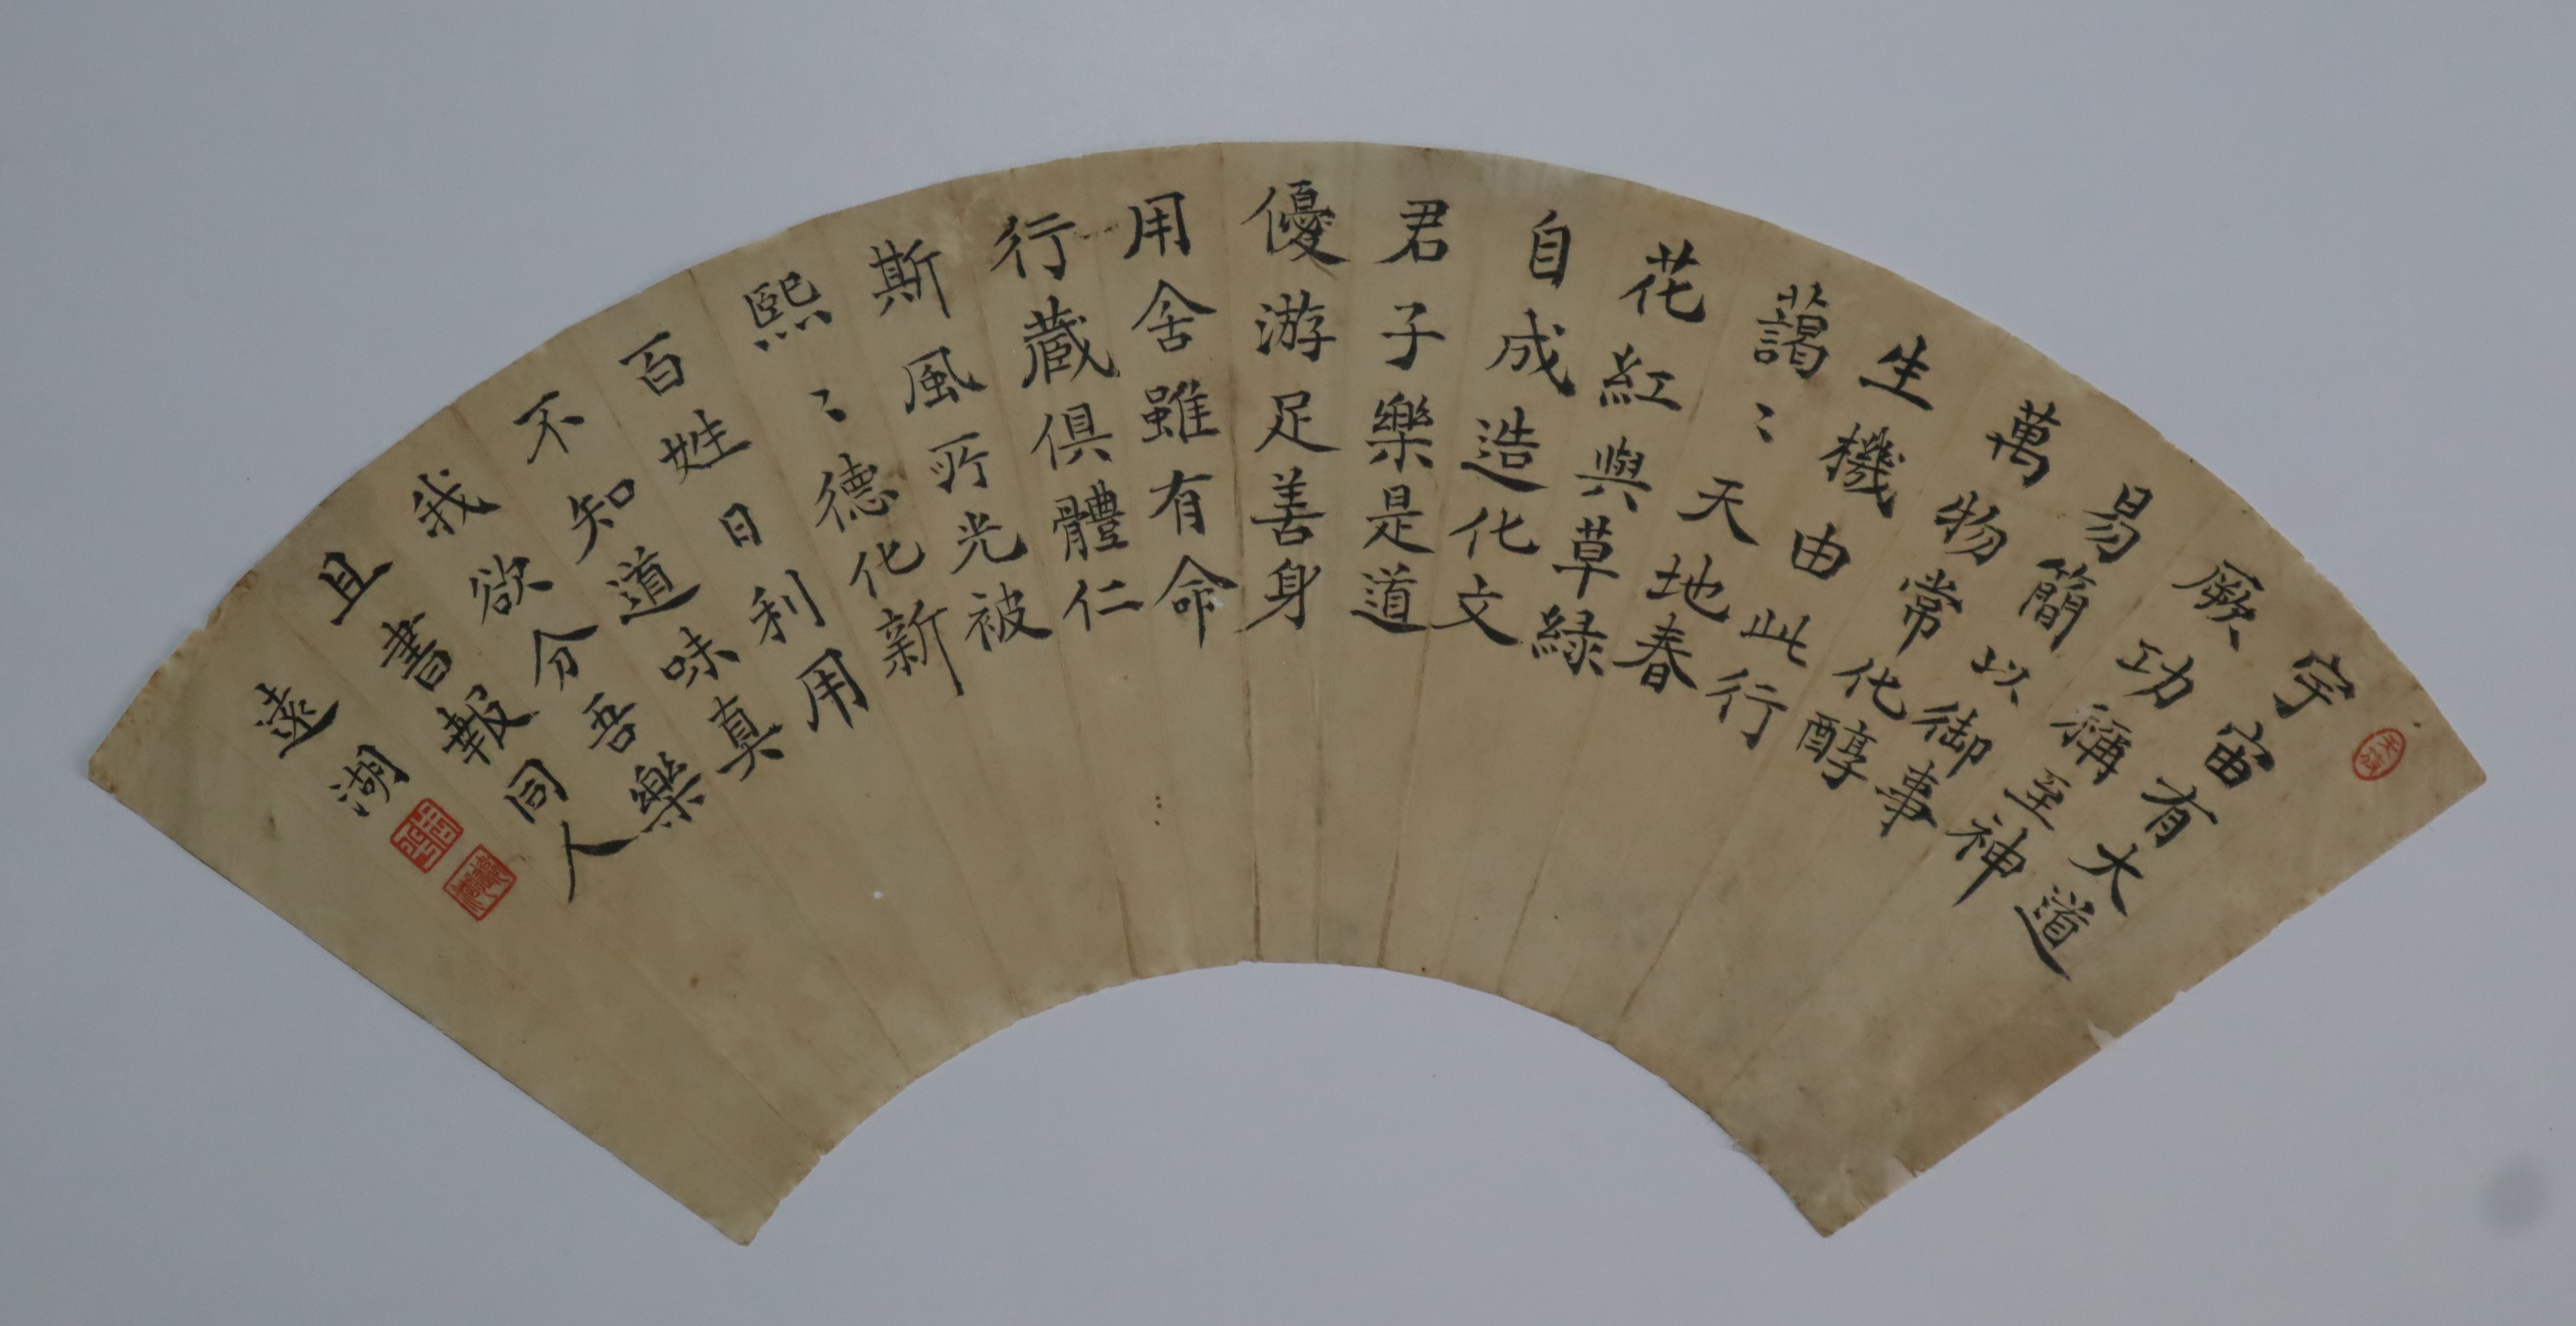 宇宙有大道
厥功稱至神
易簡以御事
萬物常化醇
生機由此行
藹〻天地春
花紅與草緑
自成造化文
君子樂是道
優游足善身
用舍雖有命
行藏俱體仁
斯風所光被
熙〻德化新
百姓日利用
不知道味真
我欲分吾樂
且書報同人
遠湖